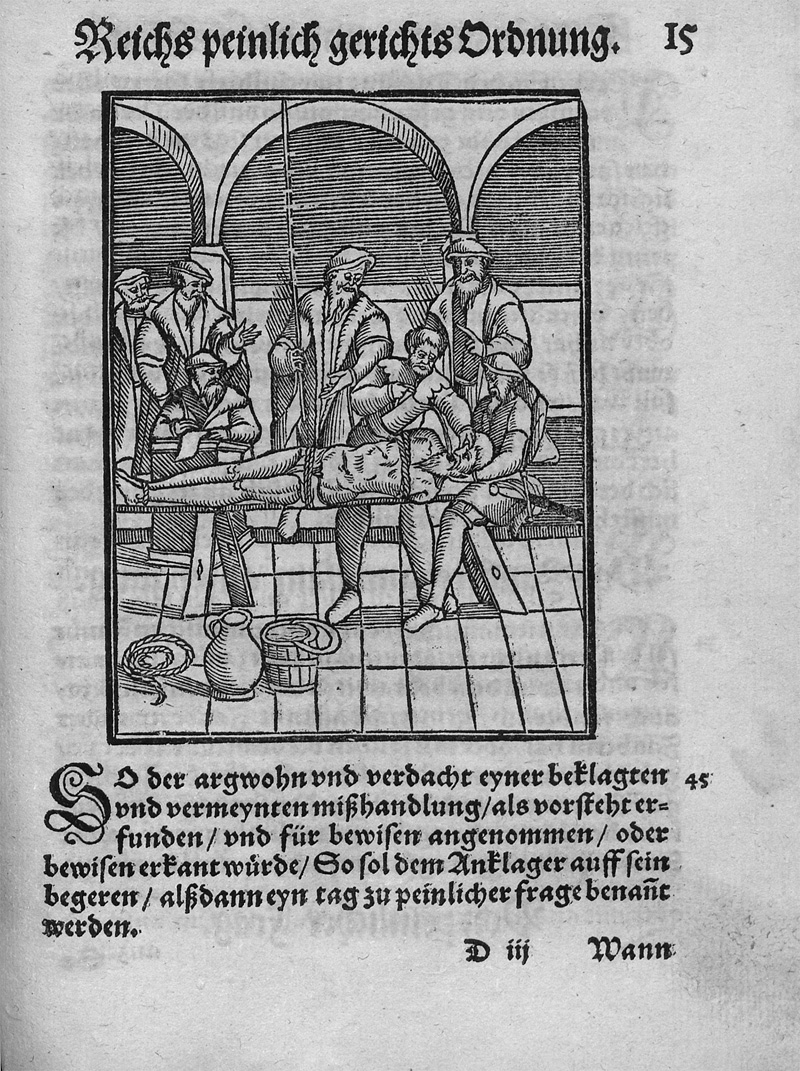 Reichs peinlich gerichts Ordnung. 15
SO der argwohn vnd verdacht eyner beklagten 45
vnd vermeynten mißhandlung/als vorsteht er=
funden/ vnd für bewisen angenommen/ oder
bewisen erkant würde/ So sol dem Anklager auff sein
begeren/ alßdann eyn tag zu peinlicher frage benañt
werden.
D iij Wann